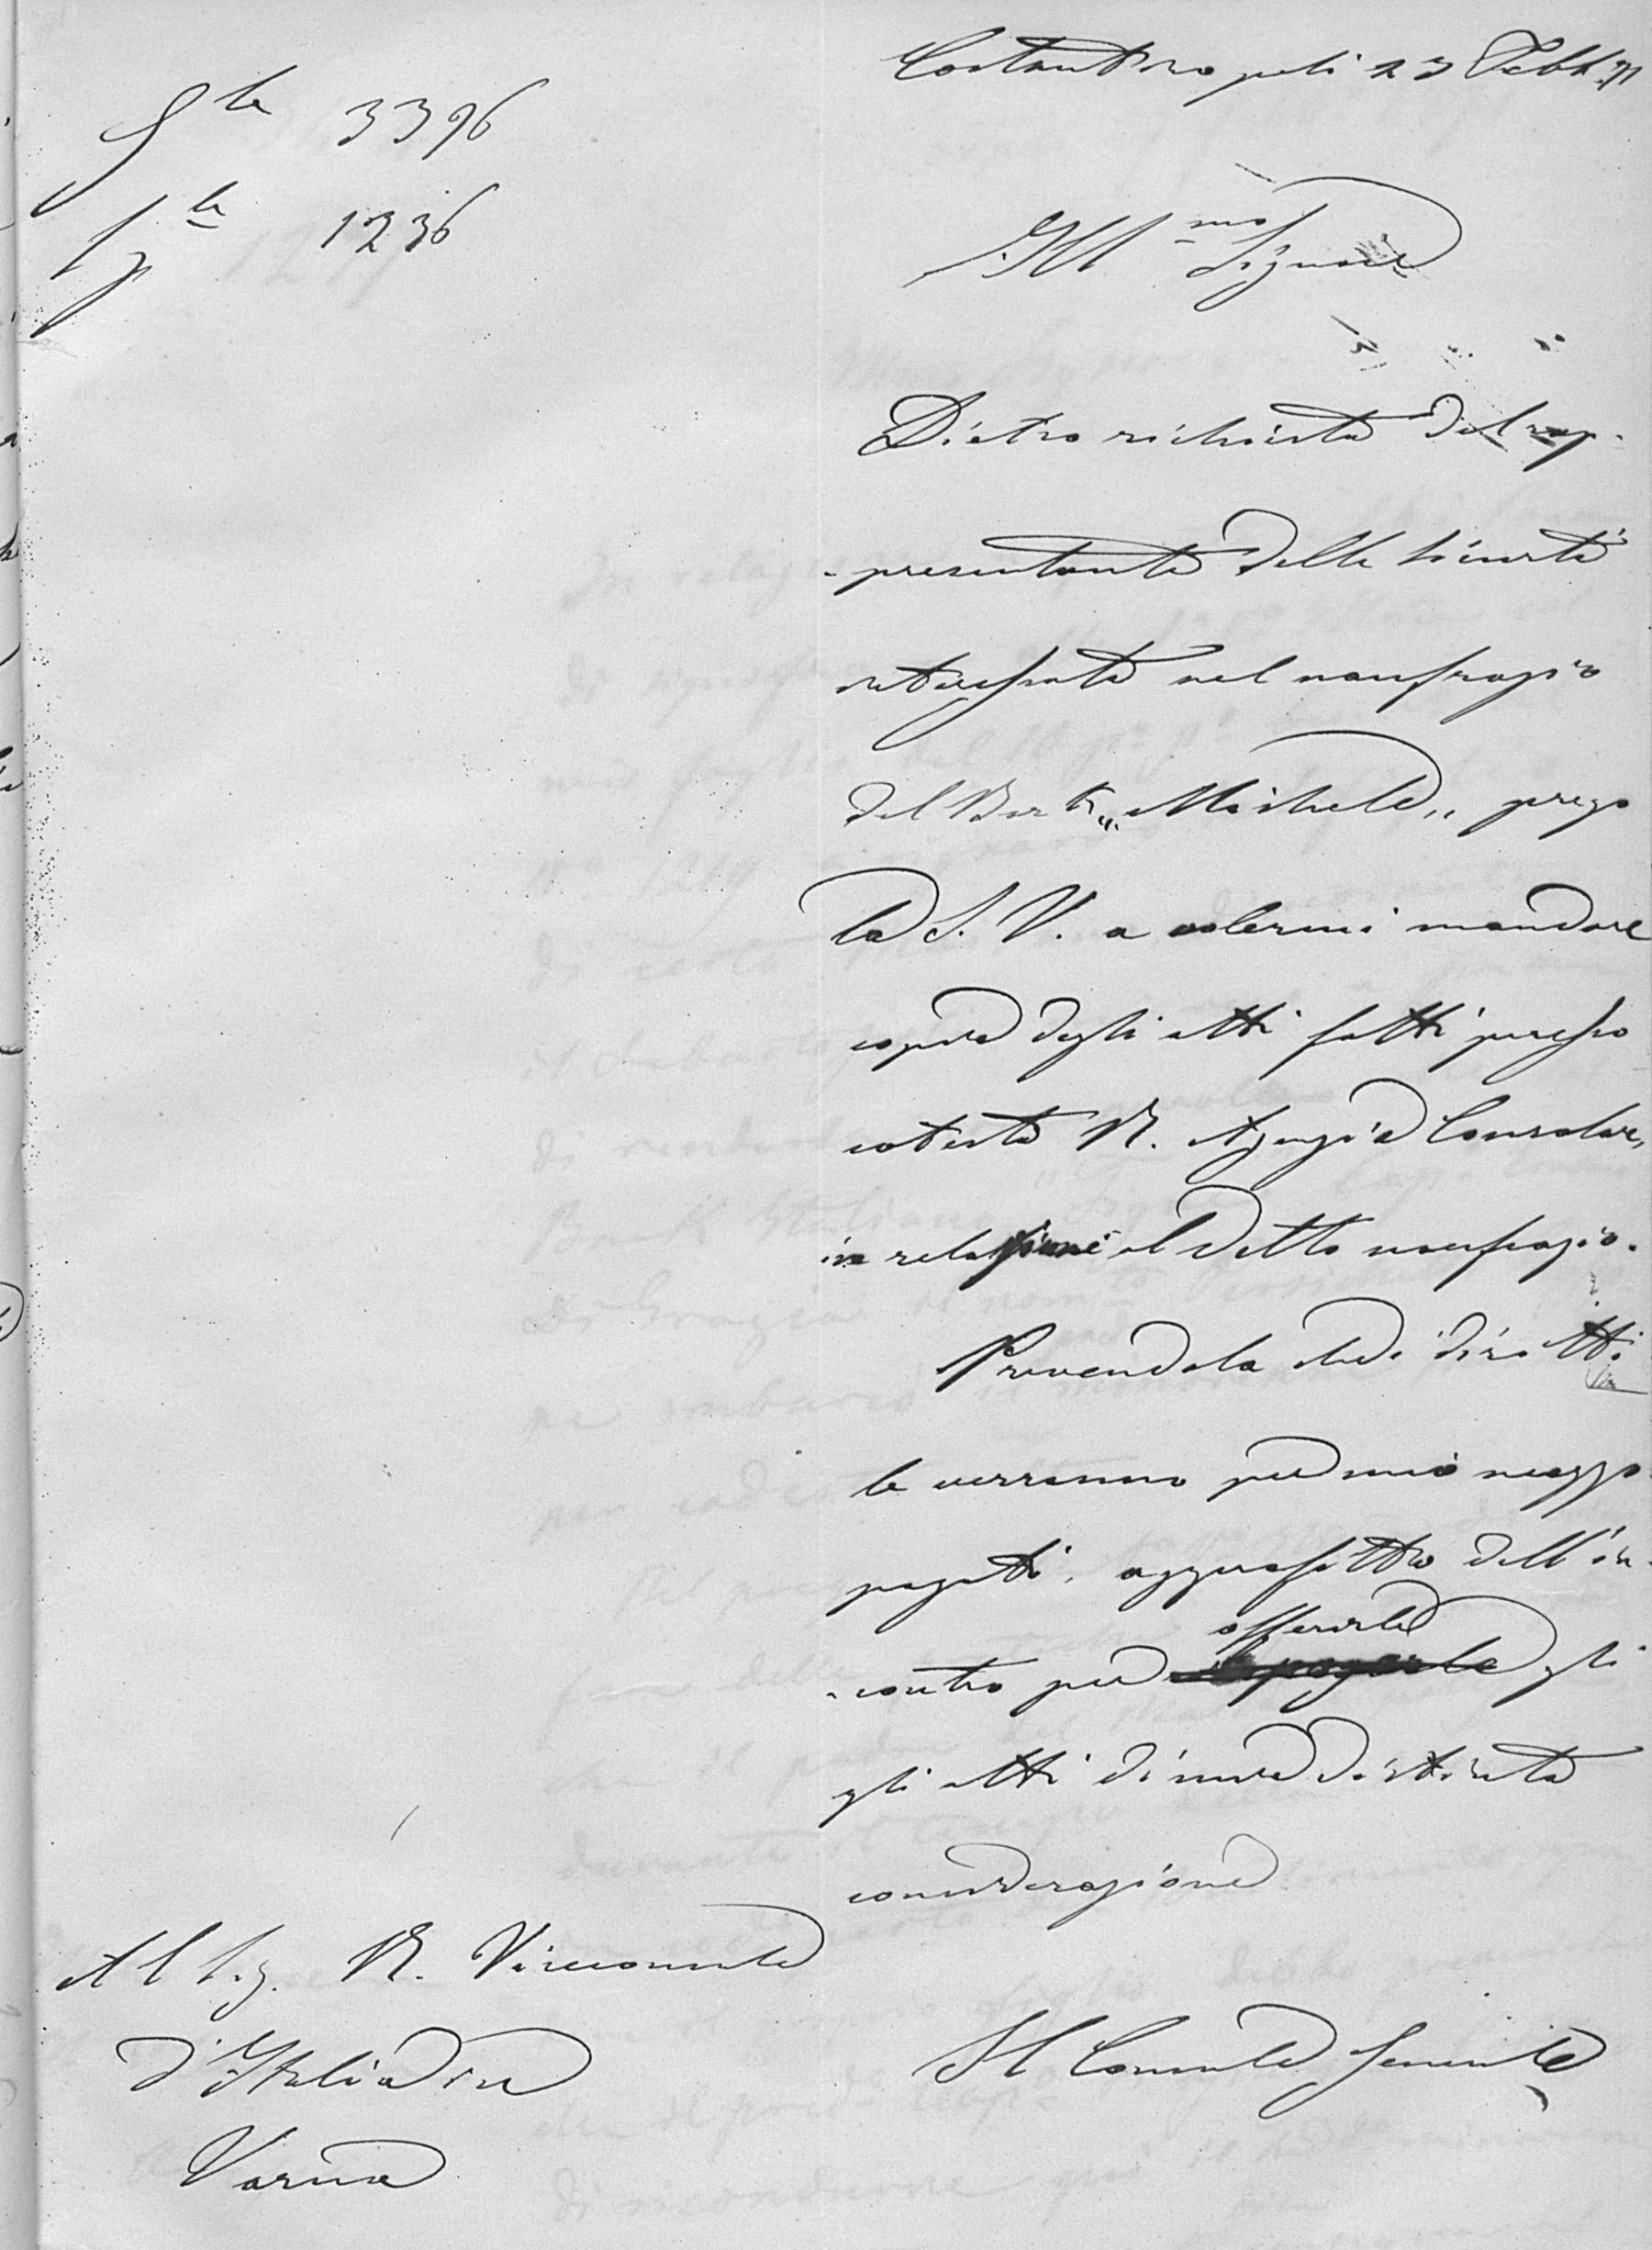 Costantinopoli 23 Febb.
G.le 3396
P.le 1236
Ill.mo Signore
Dietro richiesta del rap-
-presentante delle Sicurtà
interessate nel naufragio
del Bark „Michele„ prego
la S. V. a volermi mandare
copia degli atti fatti presso
cotesta R. Agenzia Consolare,
in relazione al detto naufragio.
Prevendola che i diritti
le verranno per mio mezzo
pagati, approfitto dell'in-
offerirle
-contro per gli
gli atti di mia distinta
considerazione
Al Sig. R. Viceconsole
d'Italia in
Varna
Il Console Generale